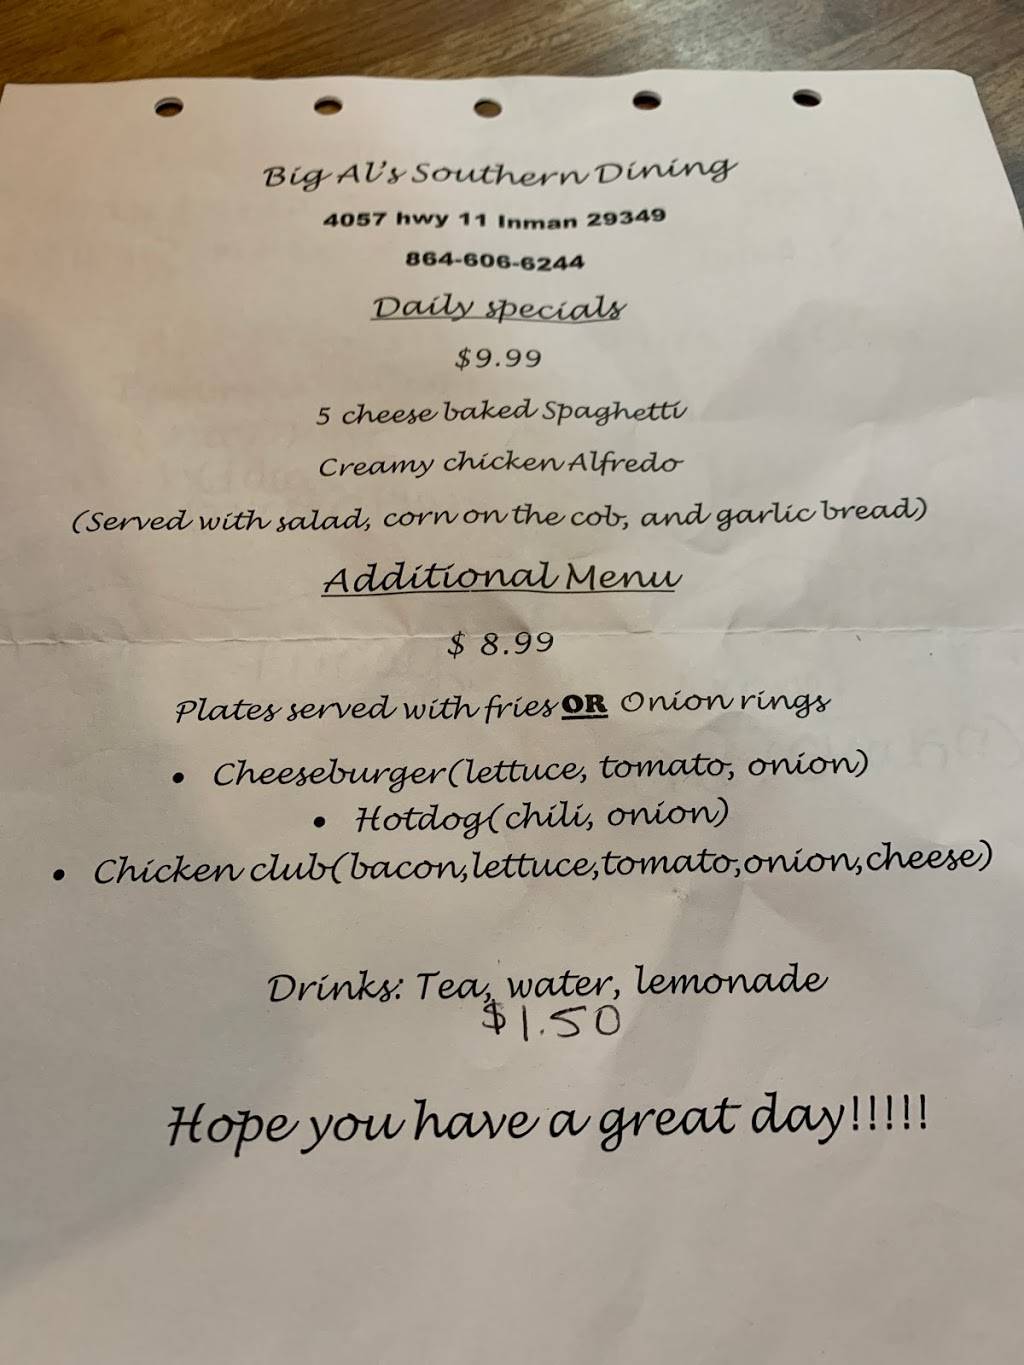 Big Al's Southern Dining
4057 hwy 11 Inman 29349
864-606-6244
Daily specials
$9.99
5 cheese baked Spaghetti
Creamy chicken Alfredo
(Served with salad, corn on the cob, and garlic bread)
Additional Menu
$ 8.99
Plates served with fries OR Onion rings
• Cheeseburger(lettuce, tomato, onion)
• Hotdog(chili, onion)
• Chicken club(bacon,lettuce,tomato,onion,cheese)
Drinks: Tea, water, lemonade
$1.50
Hope you have a great day!!!!!